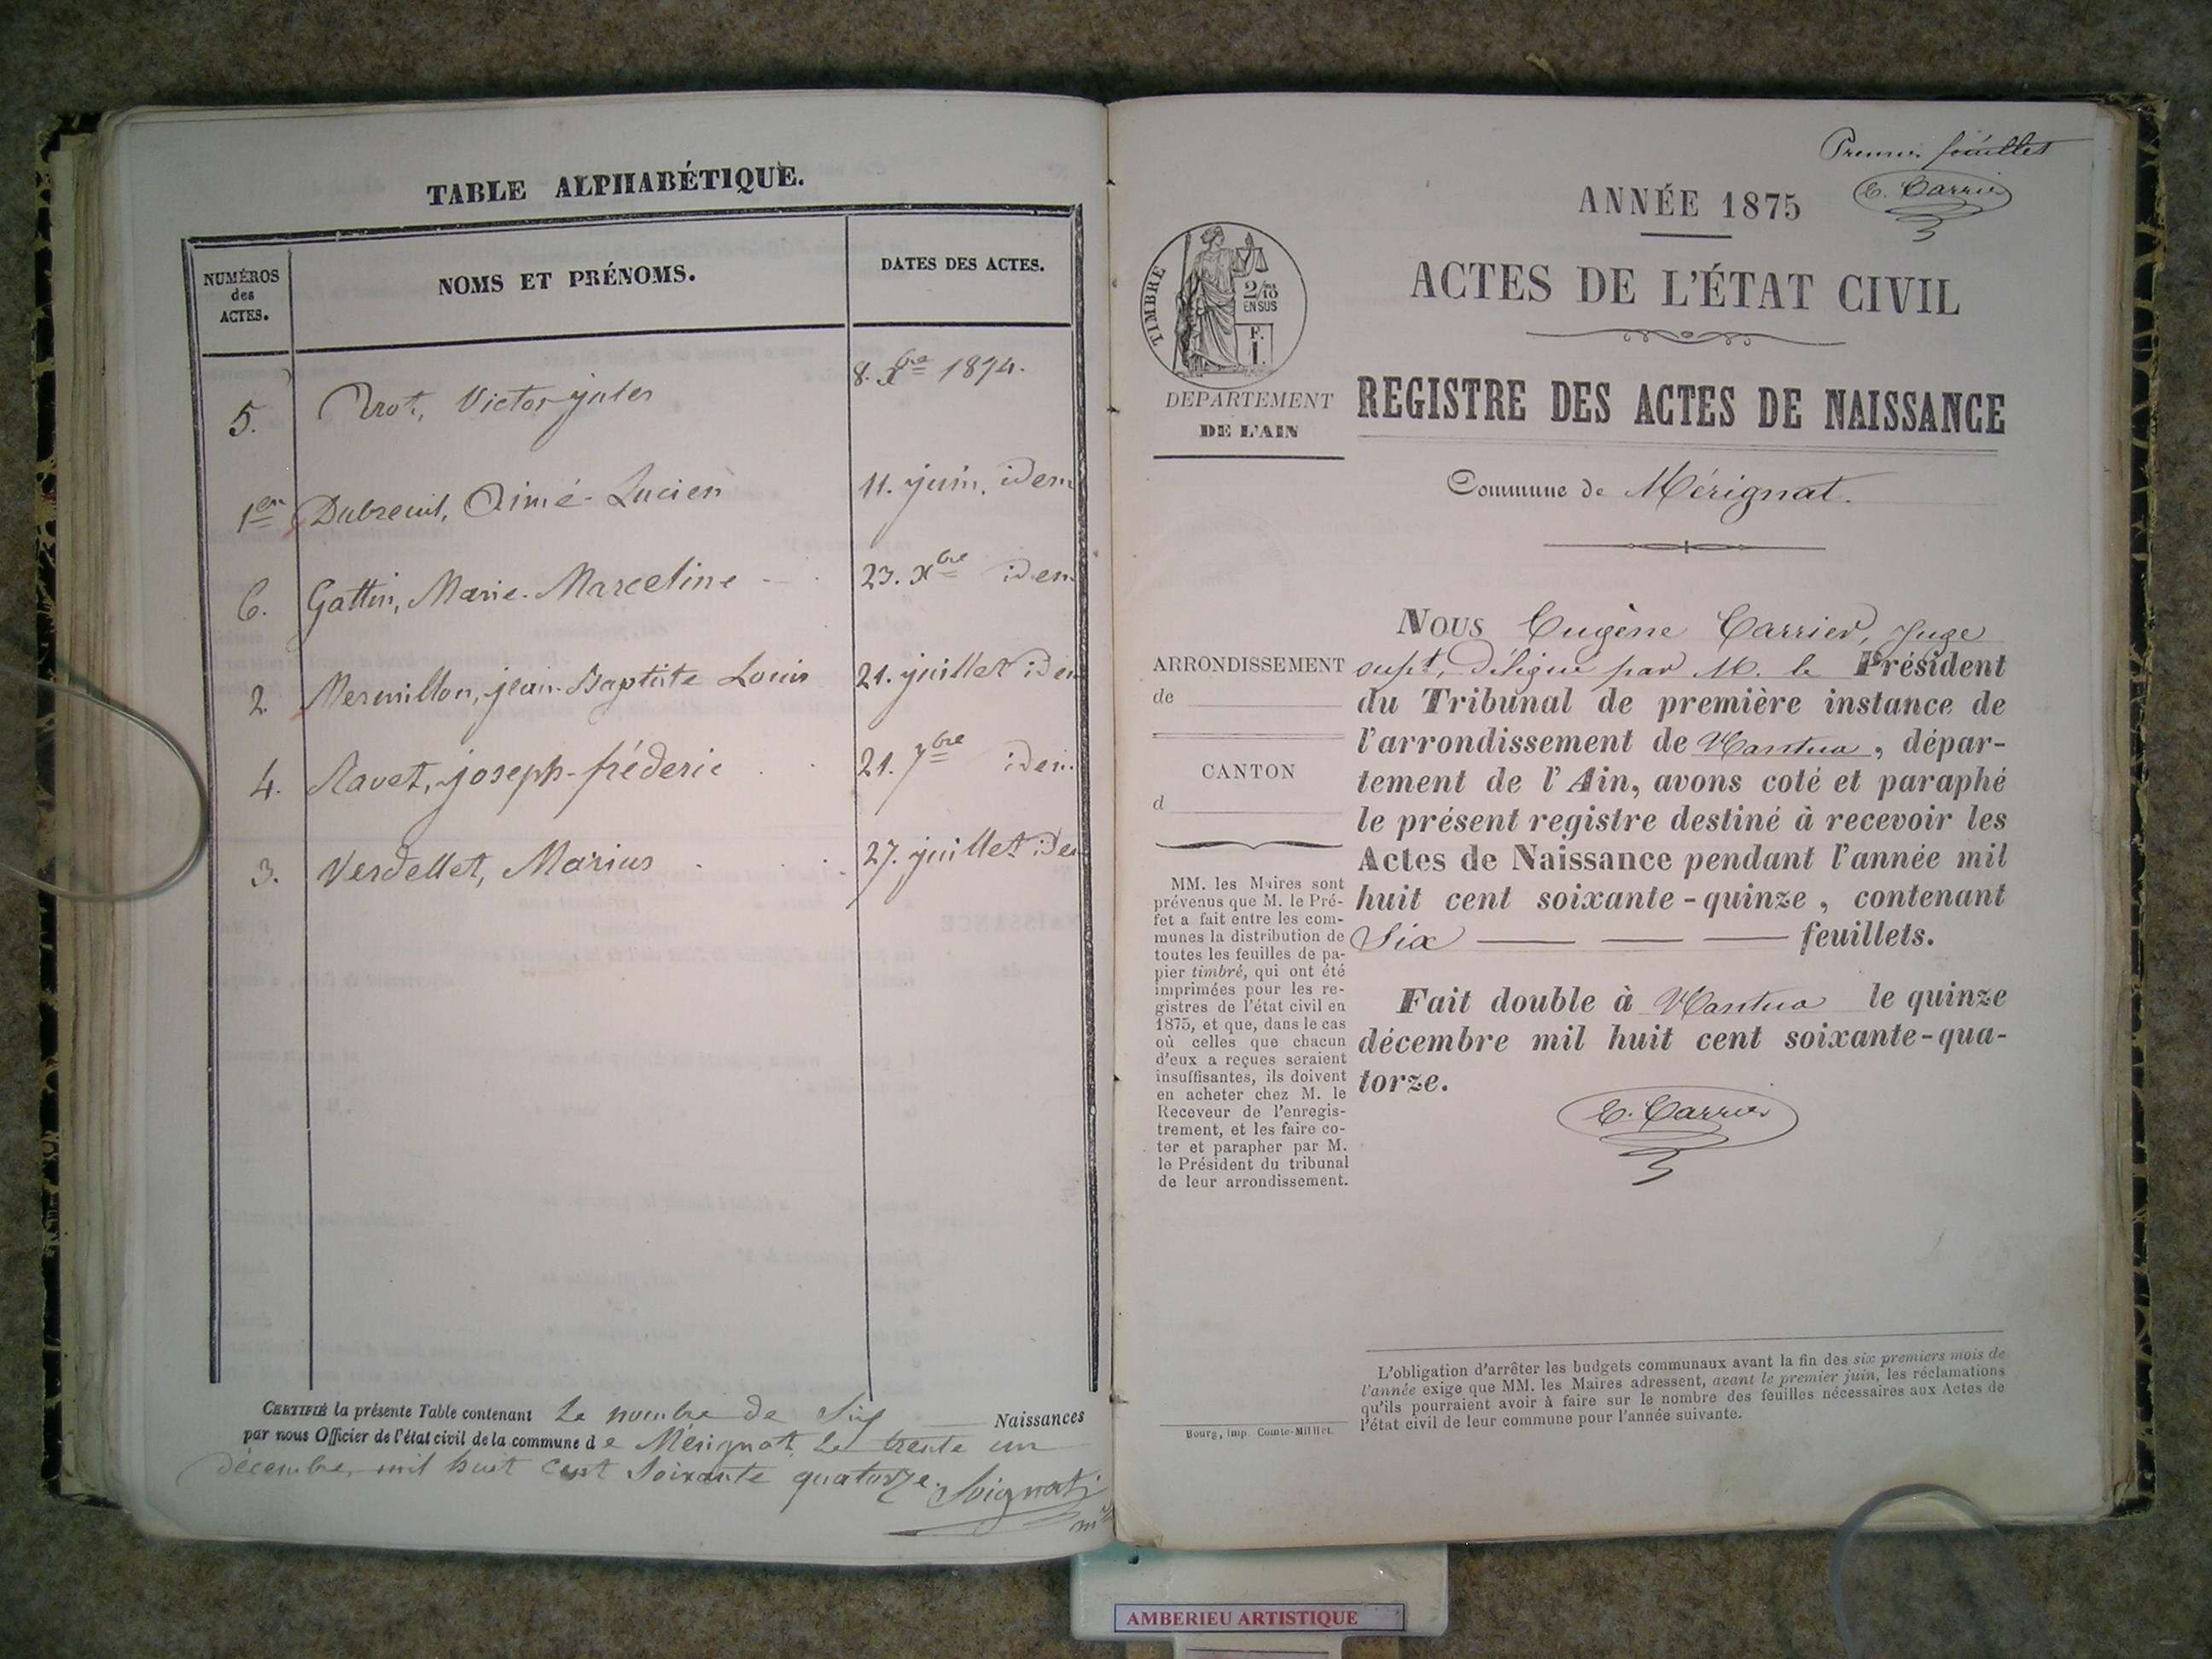 TABLE ALPHABÉTIQUE.
NUMÉROS des ACTES.
NOMS ET PRÉNOMS.
DATES DES ACTES.
5. Victor jules 8. Xbre 1874.
1er Dubreuil, Aimé-Lucien 11. juin, idem
6. Gattin, Marie-Marceline 23. Xbre idem
2. Mermillon, jean-Baptiste Louis 21. juillet idem
4. Ravet, joseph-fréderic 21. 7bre idem
3. Verdellet, Marius 27. juillet idem
CERTIFIÉ la présente Table contenant le nombre de Six Naissances
par nous Officier de l'état civil de la commune de Mérignat, le trente un
décembre, mil huit cent soixante quatorze.
Premier feuillet
E. Carrier
ANNÉE 1875
ACTES DE L'ÉTAT CIVIL
TIMBRE
2/10 EN SUS
F. 1.
DÉPARTEMENT
DE L'AIN
REGISTRE DES ACTES DE NAISSANCE
Commune de Mérignat.
NOUS Eugène Carrier, Juge
supt, délégué par M. le Président
du Tribunal de première instance de
l'arrondissement de Nantua, dépar-
tement de l'Ain, avons coté et paraphé
le présent registre destiné à recevoir les
Actes de Naissance pendant l'année mil
huit cent soixante-quinze, contenant
Six feuillets.
Fait double à Nantua le quinze
décembre mil huit cent soixante-qua-
torze.
E. Carrier
ARRONDISSEMENT
de
CANTON
d
MM. les Maires sont
prévenus que M. le Pré-
fet a fait entre les com-
munes la distribution de
toutes les feuilles de pa-
pier timbré, qui ont été
imprimées pour les re-
gistres de l'état civil en
1875, et que, dans le cas
où celles que chacun
d'eux a reçues seraient
insuffisantes, ils doivent
en acheter chez M. le
Receveur de l'enregis-
trement, et les faire co-
ter et parapher par M.
le Président du tribunal
de leur arrondissement.
Bourg, imp. Comte-Milliet.
L'obligation d'arrêter les budgets communaux avant la fin des six premiers mois de
l'année exige que MM. les Maires adressent, avant le premier juin, les réclamations
qu'ils pourraient avoir à faire sur le nombre des feuilles nécessaires aux Actes de
l'état civil de leur commune pour l'année suivante.
AMBERIEU ARTISTIQUE